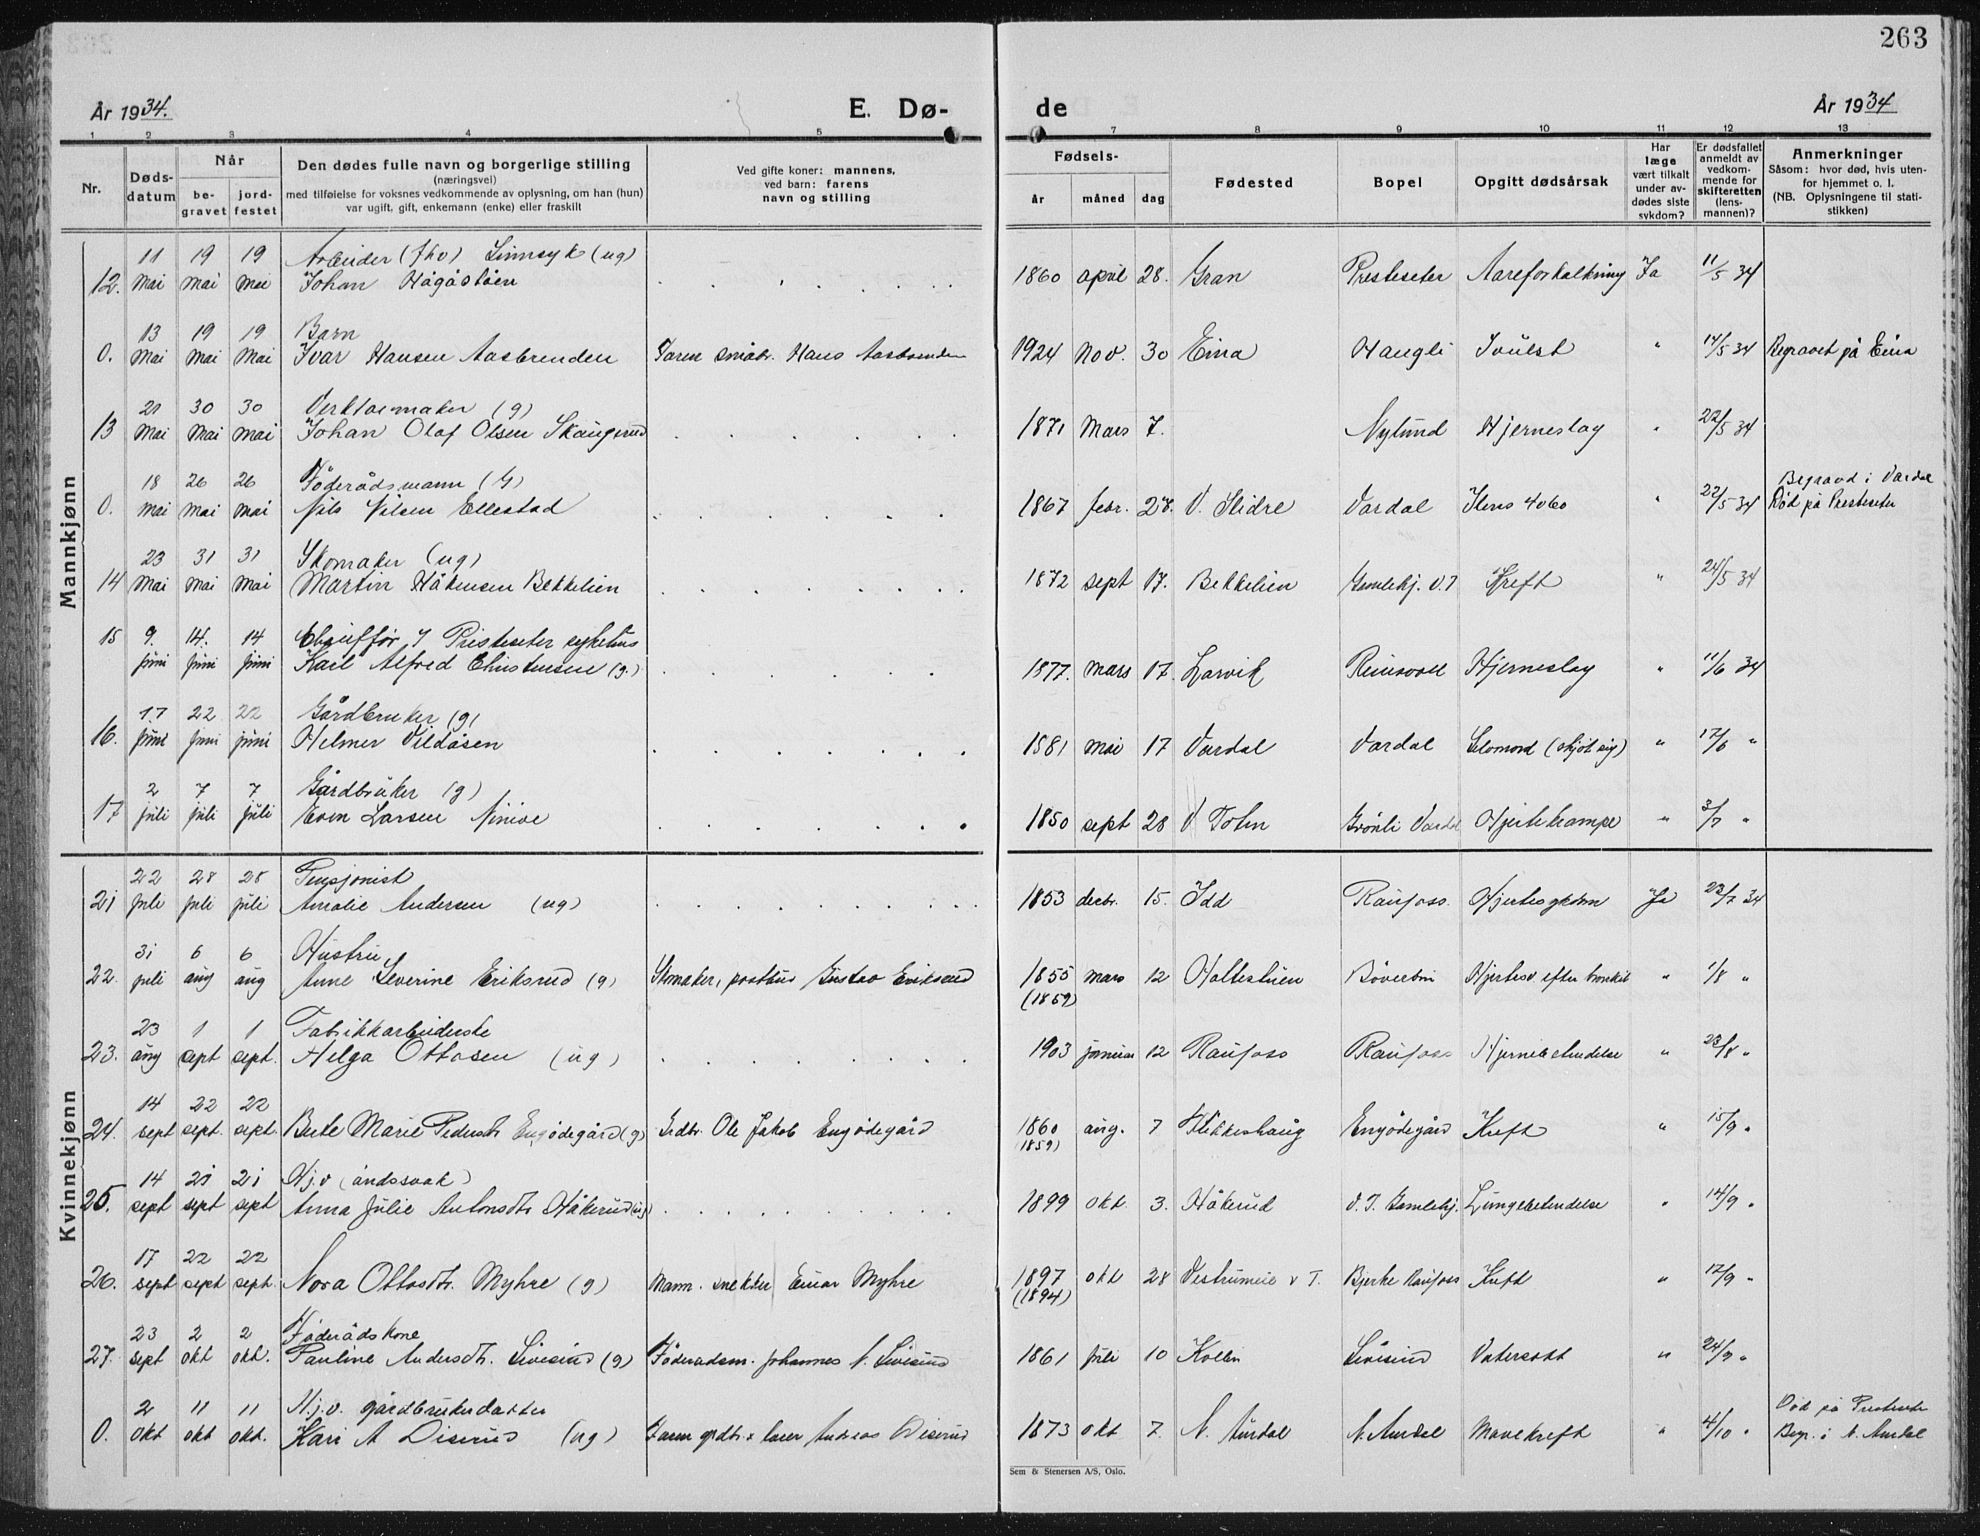 263
År 1934.
E. Dø-
de
År 1934
1 2 3 4 5
7 8 9 10 11 12 13
Nr.
Døds-
datum
Når
be-
gravet
jord-
festet
Den dødes fulle navn og borgerlige stilling
(næringsvei)
med tilføielse for voksnes vedkommende av oplysning, om han (hun)
var ugift, gift, enkemann (enke) eller fraskilt
Ved gifte koner: mannens,
ved barn: farens
navn og stilling
Fødsels-
år
måned
dag
Fødested
Bopel
Opgitt dødsårsak
Har
læge
vært tilkalt
under av-
dødes siste
sykdom?
Er dødsfallet
anmeldt av
vedkom-
mende for
skifteretten
(lens-
mannen)?
Anmerkninger
Såsom: hvor død, hvis uten-
for hjemmet o. l.
(NB. Oplysningene til stati-
stikken)
Mannkjønn
11 19 19 Arbeider (fhv) Sinnsyk (ug)
12. Mai Mai Mai Johan Hågåstøen 1860 april 28. Gran Presteseter Aareforkalkning Ja 11/5 34
13 19 19 Barn
0. Mai Mai Mai Ivar Hansen Aasbrenden Faren småbr. Hans Aasbrenden 1924 Nov. 30 Eina Haugli " 14/5 34 Begravet på Eina
21 30 30 Verktøimaker (g)
13 Mai Mai Mai Johan Olaf Olsen Skaugrud 1871 Mars 7. Nylund Hjerneslag " 22/5 34
18 26 26 Föderådsmann (g) Begravd i Vardal
0. mai mai mai Nils Nilsen Ellestad 1867 febr. 28. V. Slidre Vardal " 22/5 34 Död på Presteseter
23 31 31 Skomaker (ug)
14 Mai Mai Mai Martin Håkensen Bekkelien 1872 sept 17. Bekkelien Gamlehj. V.T Kreft " 24/5 34
15 9. 14. 14 Chaufför / Presteseter sykehus
juni juni juni Karl Alfred Christensen (g.) 1877. mars 17. Larvik Reinsvoll Hjerneslag " 11/6 34
17 22 22 Gårdbruker (g)
16. juni juni juni Helmer Vildåsen 1881 mai 17 Vardal Vardal Selvmord (skjöt sig) " 17/6 "
2 7 7 Gårdbruker (g)
17 juli juli juli Even Larsen Ninive 1850 sept 28 V Toten Grönli Vardal Hjertekrampe " 3/7 "
Kvinnekjønn
22 28 28 Pensjonist
21 juli juli juli Amalie Andersen (ug) 1853 decbr. 15. Idd Raufoss. Hjertesykdom Ja 23/7 34
31 6 6 Hustru
22. juli aug aug Anne Severine Eriksrud (g) Skomaker, Gustav Eriksrud 1855 mars 12 Holtestuen Böverbru Hjertesv. efter bronkit " 1/8 "
(1859)
23 1 1 Fabrikkarbeiderske
23. aug sept sept. Helga Ottosen (ug) 1903 januar 12 Raufoss Raufoss Hjernebetendelse " 23/8 "
14 22 22
24. sept sept. sept. Berte Marie Pedersdtr. Engödegård (g) Grdbr. Ole Jakob Engödegård 1860 aug. 7 Flikkeshaug Engödegård Kreft " 15/9 "
(1859)
14 21 21 Hj.v (åndssvak)
25. sept sept sept Anna Julie Antonsdtr Håkerud (ug) 1899 okt. 3. Håkerud V. T. Gamlehj. Lungebetendelse " 14/9 "
17 22 22
26. sept sept sept. Nora Ottosdtr. Myhre (g) Mann. snekker Einar Myhre 1897 okt 28 Vestrumeie v T. Bjerke Raufoss Kreft " 17/9 "
(1894)
23 2 2 Föderådskone
27. sept okt okt. Pauline Andersdtr. Sivesind (g) Föderadsm. Johannes A. Sivesind 1861 juli 10 Kollen Sivesind Vatersott " 24/9 "
2 11 11 Hj.v. gårdbrukerdatter Död på
0. okt okt okt. Kari A Diserud (ug) Faren grdbr. x lærer Andreas Diserud 1873 okt 7. N. Aurdal N. Aurdal Mavekreft " 4/10 " Begr. i N. Aurdal
Sem & Stenersen A/S, Oslo.